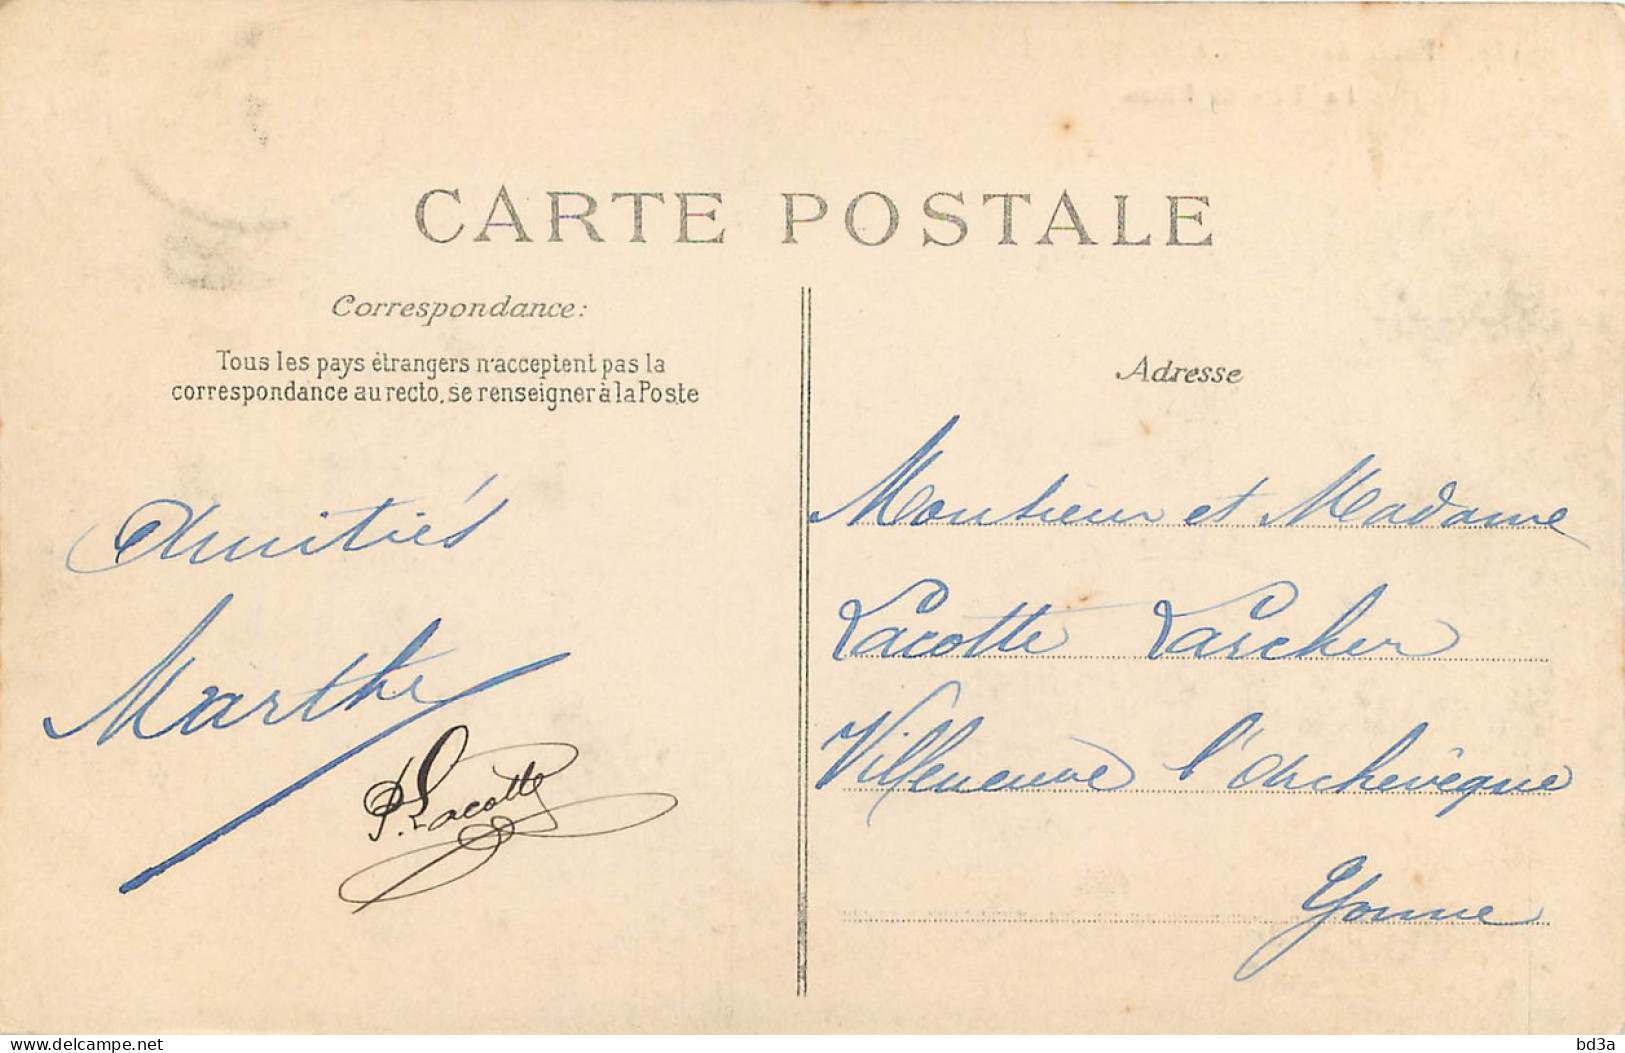 CARTE POSTALE
Correspondance:
Tous les pays étrangers n'acceptent pas la
correspondance au recto, se renseigner à la Poste
Amitiés
Marthe
P. Lacotte
Adresse
Monsieur et Madame
Lacotte Larcher
Villeneuve l'Archevêque
Yonne
delcampe.net
bd3a